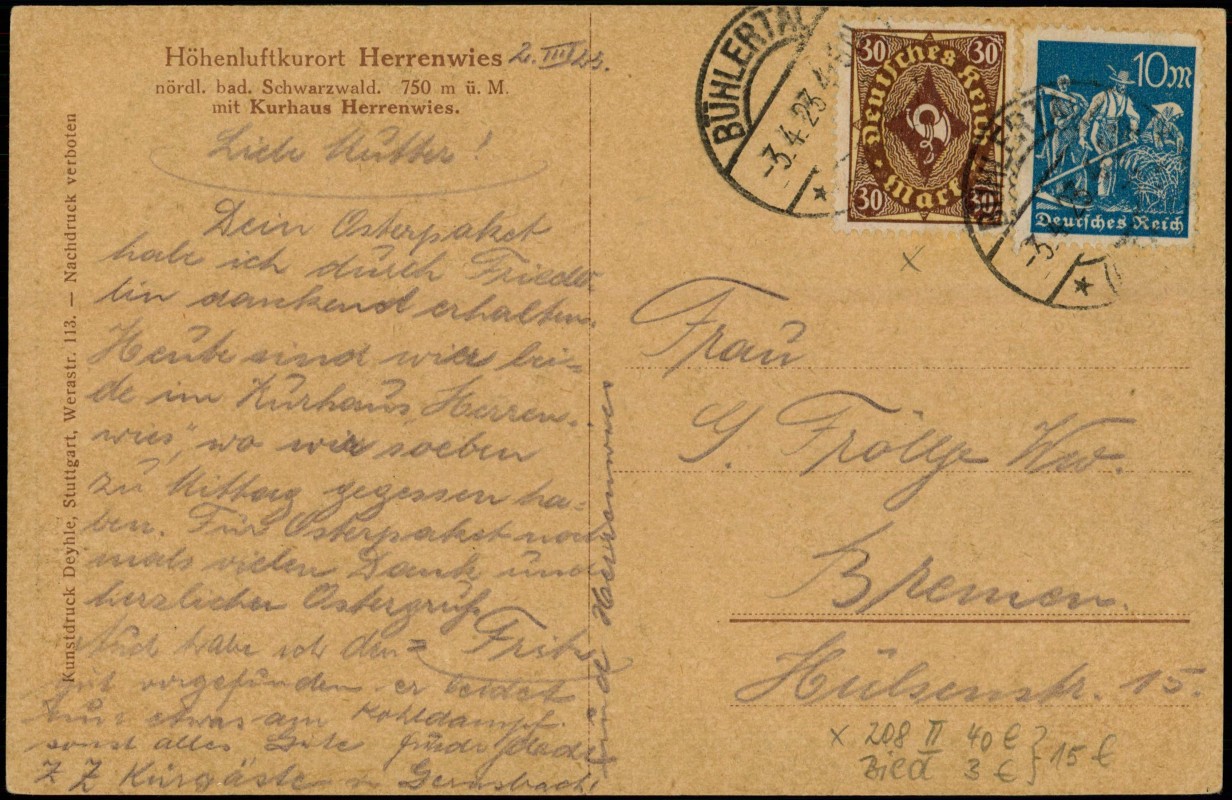 Höhenluftkurort Herrenwies 2. III 23.
nördl. bad. Schwarzwald. 750 m ü. M.
mit Kurhaus Herrenwies.
Liebe Mutter!
Dein Osterpaket
habe ich durch Friedo
lin dankend erhalten.
Heute sind wir bei=
de im „Kurhaus Herren=
wies", wo wir soeben
zu Mittag gegessen ha=
ben. Für Osterpaket noch
mals vielen Dank und
herzlichen Ostergruß
Fritz
habe ich den
gut vorgefunden er leidet
nur etwas am Kohldampf.
sonst alles Gute
Z Z Kurgäste in Gernsbach
Herrenwies
Kunstdruck Deyhle, Stuttgart, Werastr. 113. — Nachdruck verboten
BÜHLERTAL
-3.4.23.4-5
30 30
Deutsches Reich
Mark
30 30
10M
Deutsches Reich
BÜHLERTAL
-3.4.
Frau
G. Frölje Ww.
Bremen.
Hülsenstr. 15.
x
x 208 II 40 € } 15 €
Bied 3 €